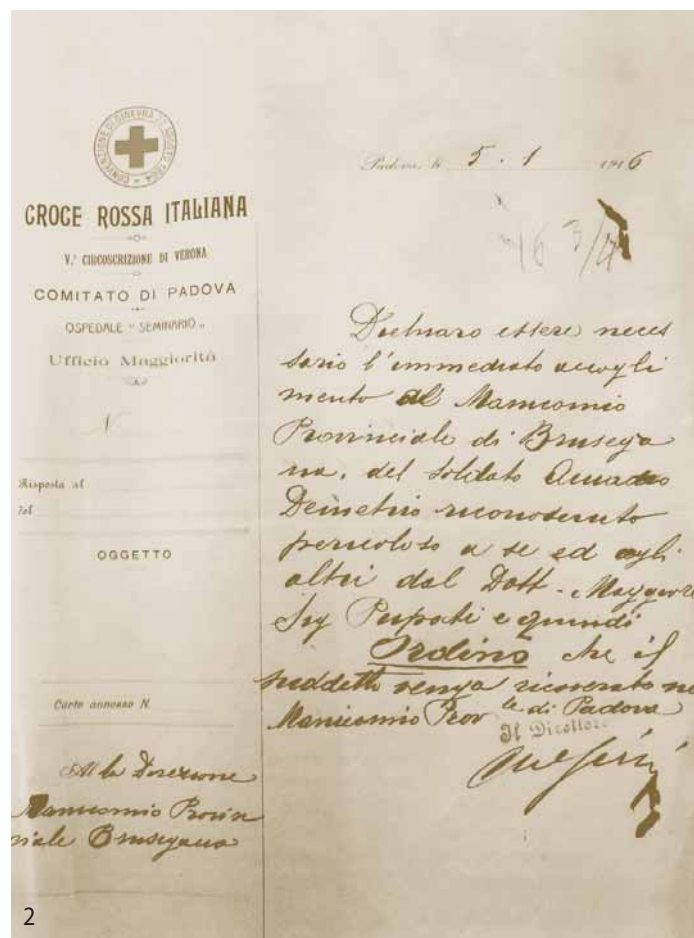 CONVENZIONE DI GINEVRA 22 AGOSTO 1864
CROCE ROSSA ITALIANA
V.ª CIRCOSCRIZIONE DI VERONA
COMITATO DI PADOVA
OSPEDALE "SEMINARIO"
Ufficio Maggiorità
N
Risposta al
del
OGGETTO
Carte annesse N.
Alla Direzione
Manicomio Provin
ciale Brusegana
Padova, li 5. 1 1916
16 3/4
Dichiaro essere neces
sario l'immediato accogli
mento al Manicomio
Provinciale di Brusega
na, del soldato Amadio
Demetrio riconosciuto
pericoloso a se ed agli
altri dal Dott. Maggiore
Sig Pupati e quindi
Ordino che il
suddetto venga ricoverato nel
Manicomio Prov.le di Padova
Il Direttore
2